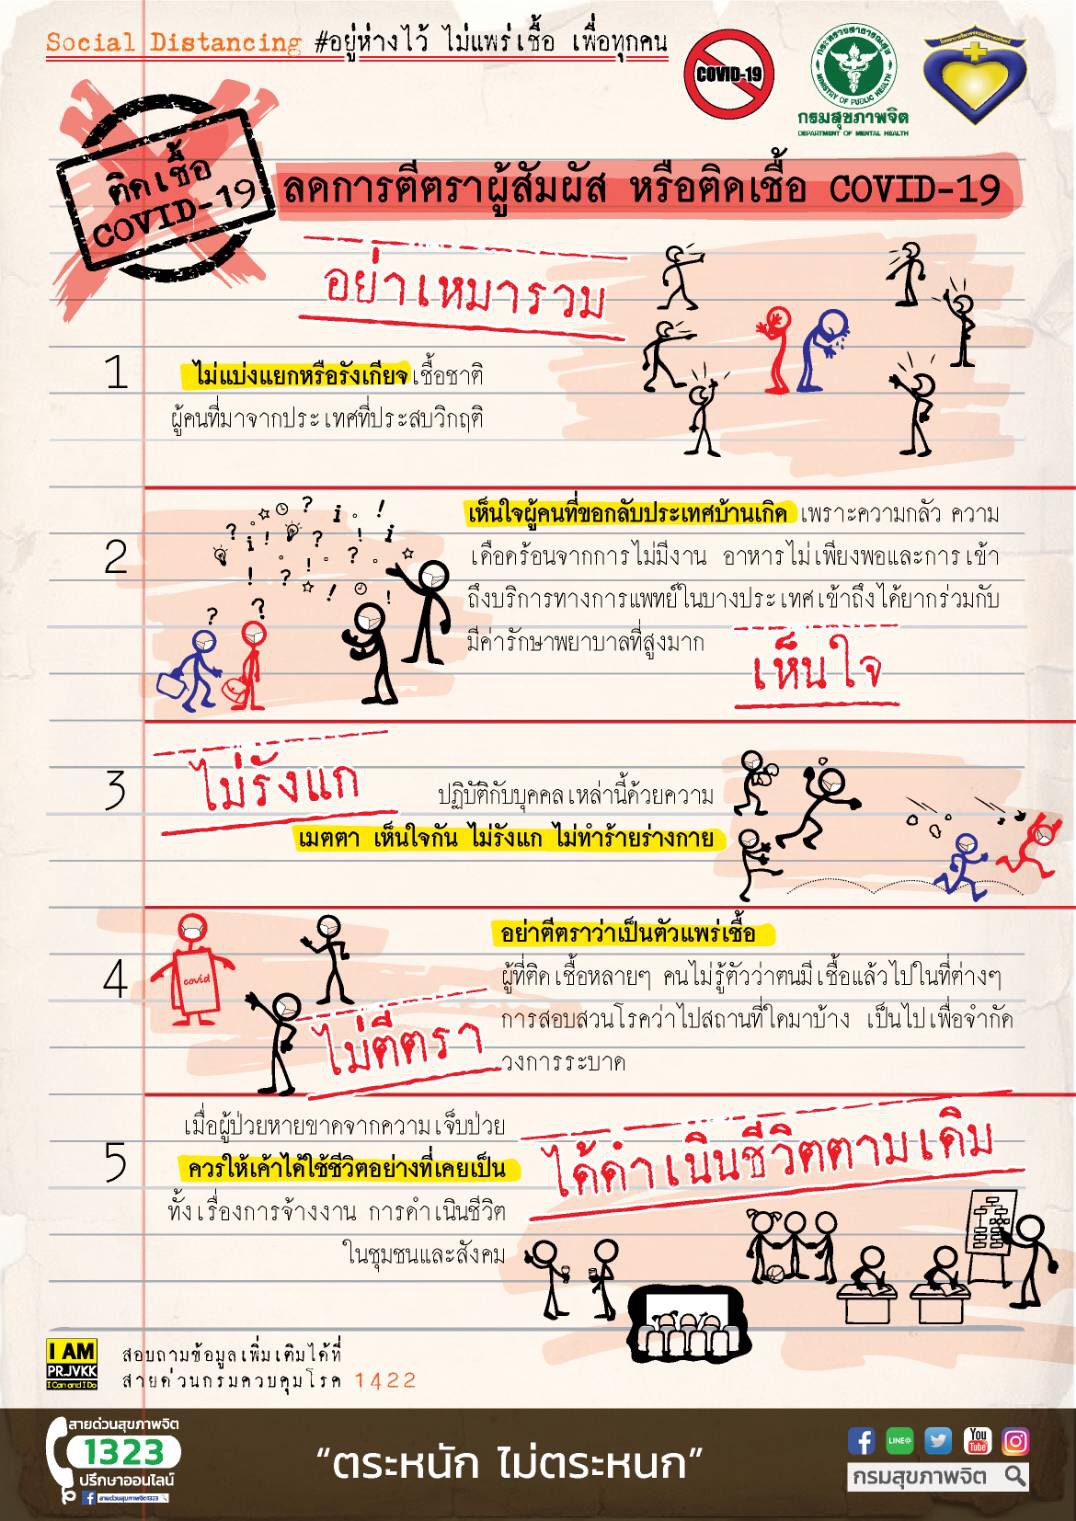 Social Distancing #อยู่ห่างไว้ ไม่แพร่เชื้อ เพื่อทุกคน
COVID-19
กระทรวงสาธารณสุข
MINISTRY OF PUBLIC HEALTH
กรมสุขภาพจิต
DEPARTMENT OF MENTAL HEALTH
ติดเชื้อ
COVID-19
ลดการตีตราผู้สัมผัส หรือติดเชื้อ COVID-19
อย่าเหมารวม
1
ไม่แบ่งแยกหรือรังเกียจ เชื้อชาติ
ผู้คนที่มาจากประเทศที่ประสบวิกฤติ
2
เห็นใจผู้คนที่ขอกลับประเทศบ้านเกิด เพราะความกลัว ความ
เดือดร้อนจากการไม่มีงาน อาหารไม่เพียงพอและการเข้า
ถึงบริการทางการแพทย์ในบางประเทศเข้าถึงได้ยากร่วมกับ
มีค่ารักษาพยาบาลที่สูงมาก
เห็นใจ
3
ไม่รังแก
ปฏิบัติกับบุคคลเหล่านี้ด้วยความ
เมตตา เห็นใจกัน ไม่รังแก ไม่ทำร้ายร่างกาย
4
covid
ไม่ตีตรา
อย่าตีตราว่าเป็นตัวแพร่เชื้อ
ผู้ที่ติดเชื้อหลายๆ คนไม่รู้ตัวว่าตนมีเชื้อแล้วไปในที่ต่างๆ
การสอบสวนโรคว่าไปสถานที่ใดมาบ้าง เป็นไปเพื่อจำกัด
วงการระบาด
5
เมื่อผู้ป่วยหายขาดจากความเจ็บป่วย
ควรให้เค้าได้ใช้ชีวิตอย่างที่เคยเป็น
ทั้งเรื่องการจ้างงาน การดำเนินชีวิต
ในชุมชนและสังคม
ได้ดำเนินชีวิตตามเดิม
I AM
PRJVKK
I Can and I Do
สอบถามข้อมูลเพิ่มเติมได้ที่
สายด่วนกรมควบคุมโรค 1422
สายด่วนสุขภาพจิต
1323
ปรึกษาออนไลน์
สายด่วนสุขภาพจิต1323
“ตระหนัก ไม่ตระหนก”
LINE@
You
Tube
กรมสุขภาพจิต